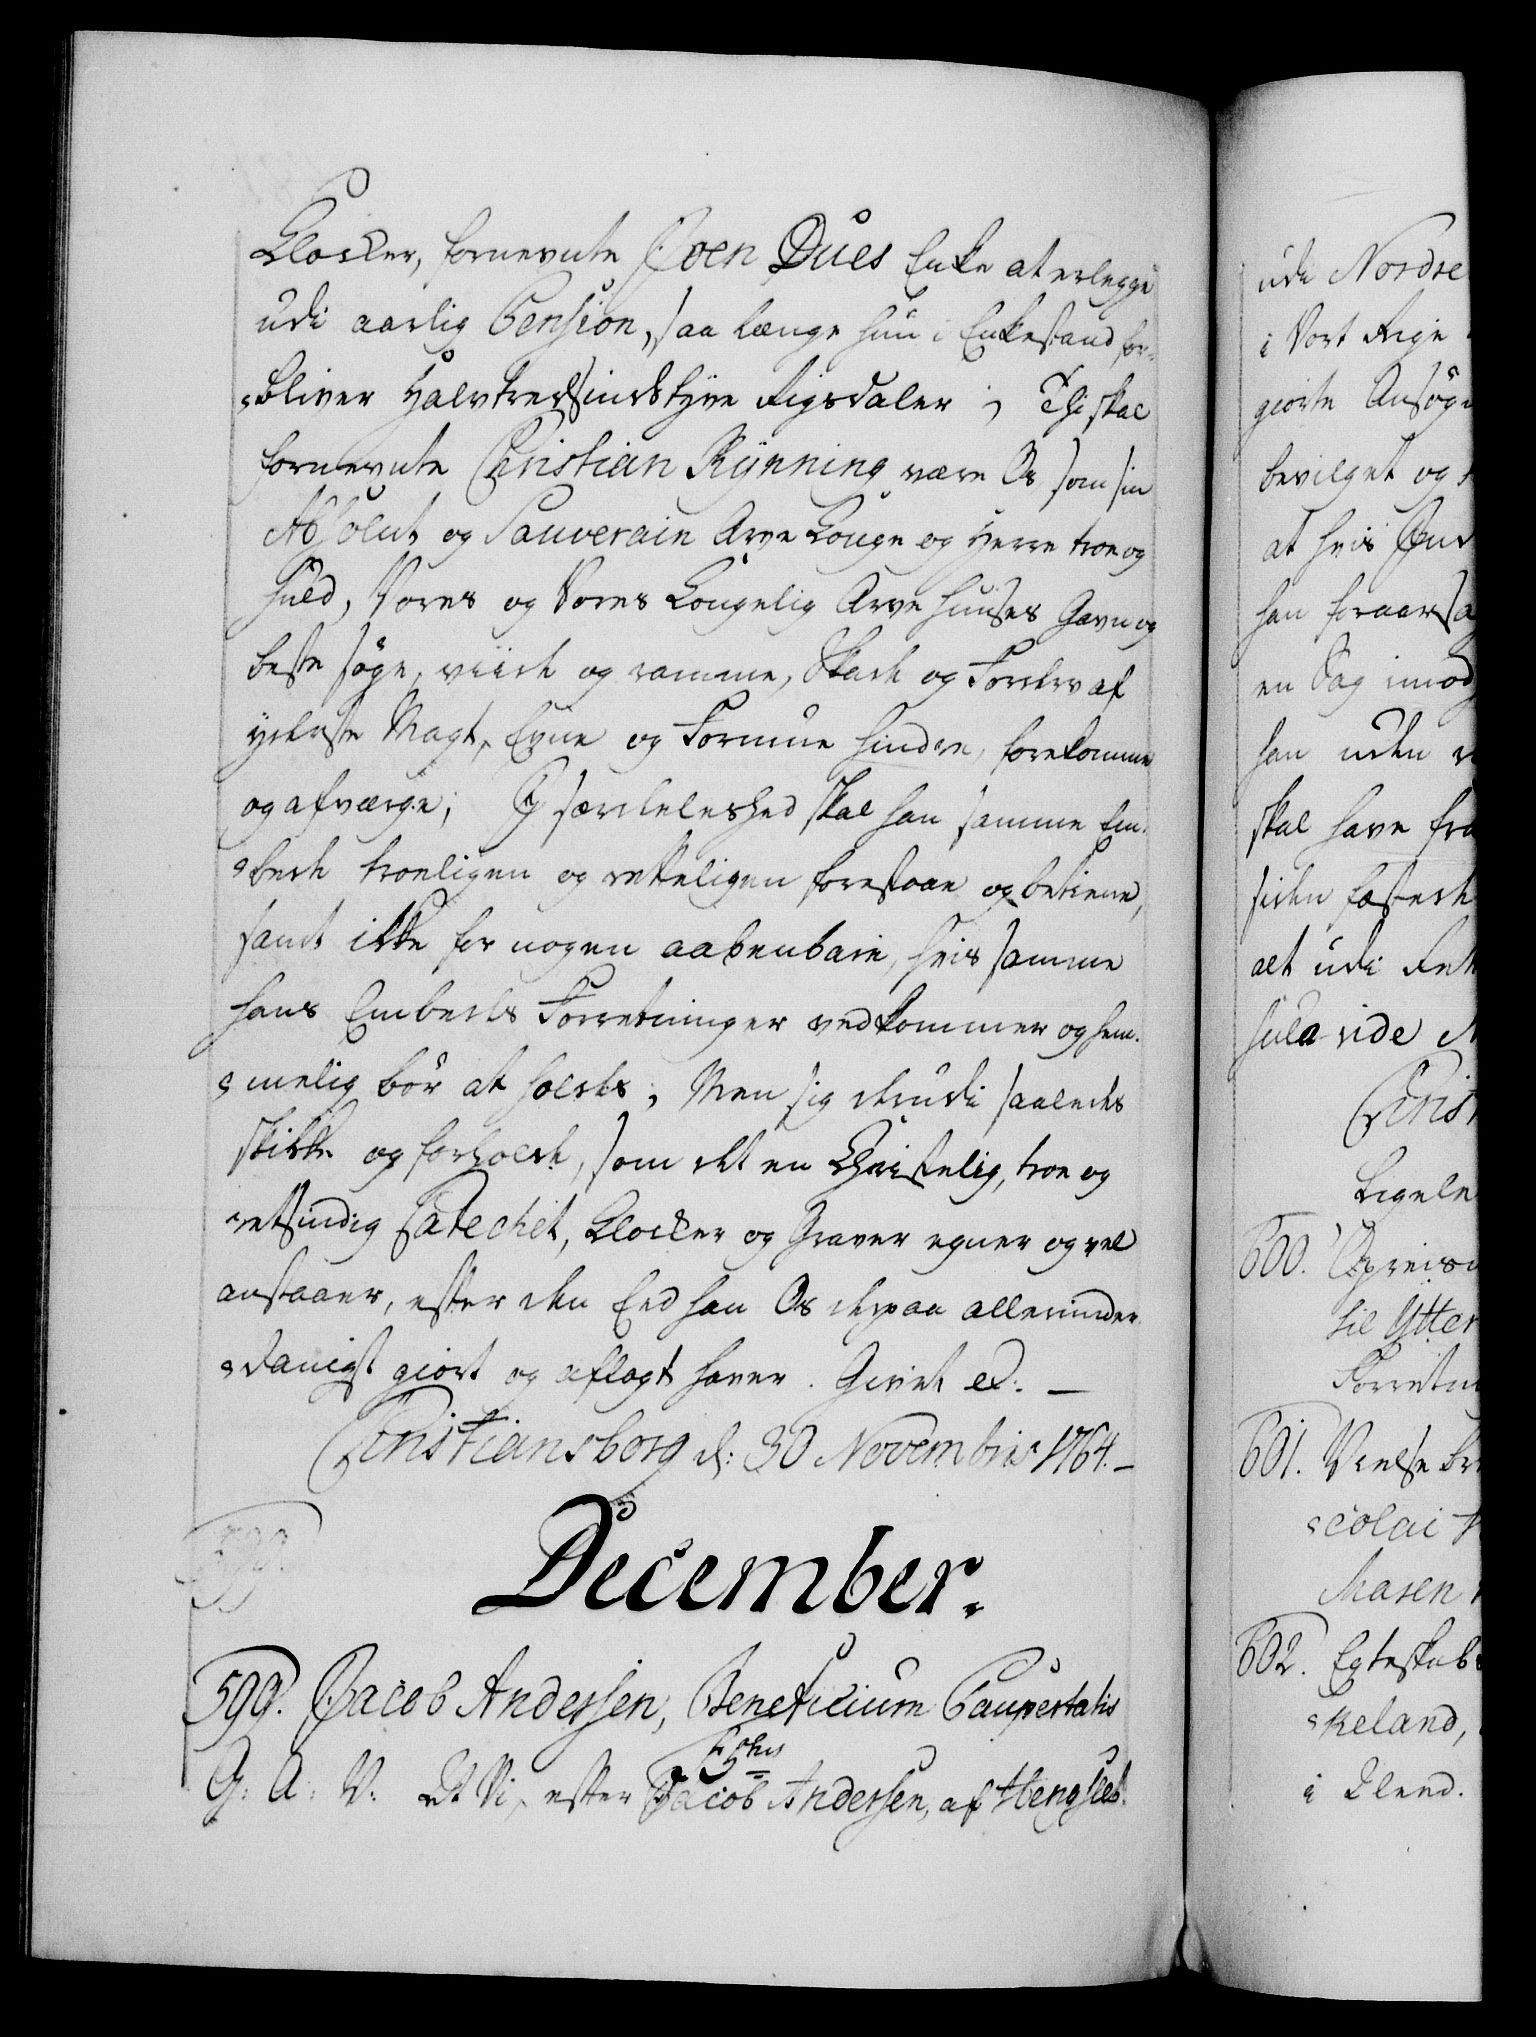 Klocker, fornevnte Joen Dues Enke at erlegge
udi aarlig Pension, saa længe hun i Enkestand for-
bliver Halvtredsindstyve Rigsdaler; Thi skal
fornevnte Christian Rynning være Os som sin
Absolut og Souverain Arve Konge og Herre troe og
huld, Vores og Vores Kongelig Arve Huuses Gavn og
beste søge, viide og ramme, Skade og Forderv af
yderste Magt, Evne og Formue hindre, forekomme
og afværge; I særdeleshed skal han samme Em-
bede troeligen og retteligen forestaae og betiene,
samt ikke for nogen aabenbare, hvis samme
hans Embeds Forretninger vedkommer og hem-
melig bør at holdes; Men sig derudi saaledes
skikke og forholde, som det en Christelig, troe og
retsindig Catechet, Klocker og Graver egner og vel
anstaaer, efter den Eed han Os derpaa allerunder-
danigst giort og aflagt haver. Givet &. —
Christiansborg d: 30 Novembris 1764. —
599.
December.
599. Jacob Andersen, Beneficium Paupertatis
G: A: V: At Vi, efter Jacob Andersen, af
ude Nordre
i Vort Rige
giorte Ansøgn
bevilget og
at hvis
han foraarsa
en Sag imod
han uden
skal have fra
siden fæstede
alt udi Ret
hula vide
Christ
Ligele
600. Opreisn
til Ytter
Forretn
601. Vielse br
colai
Maren
602. Egteskab
keland,
i Elend.